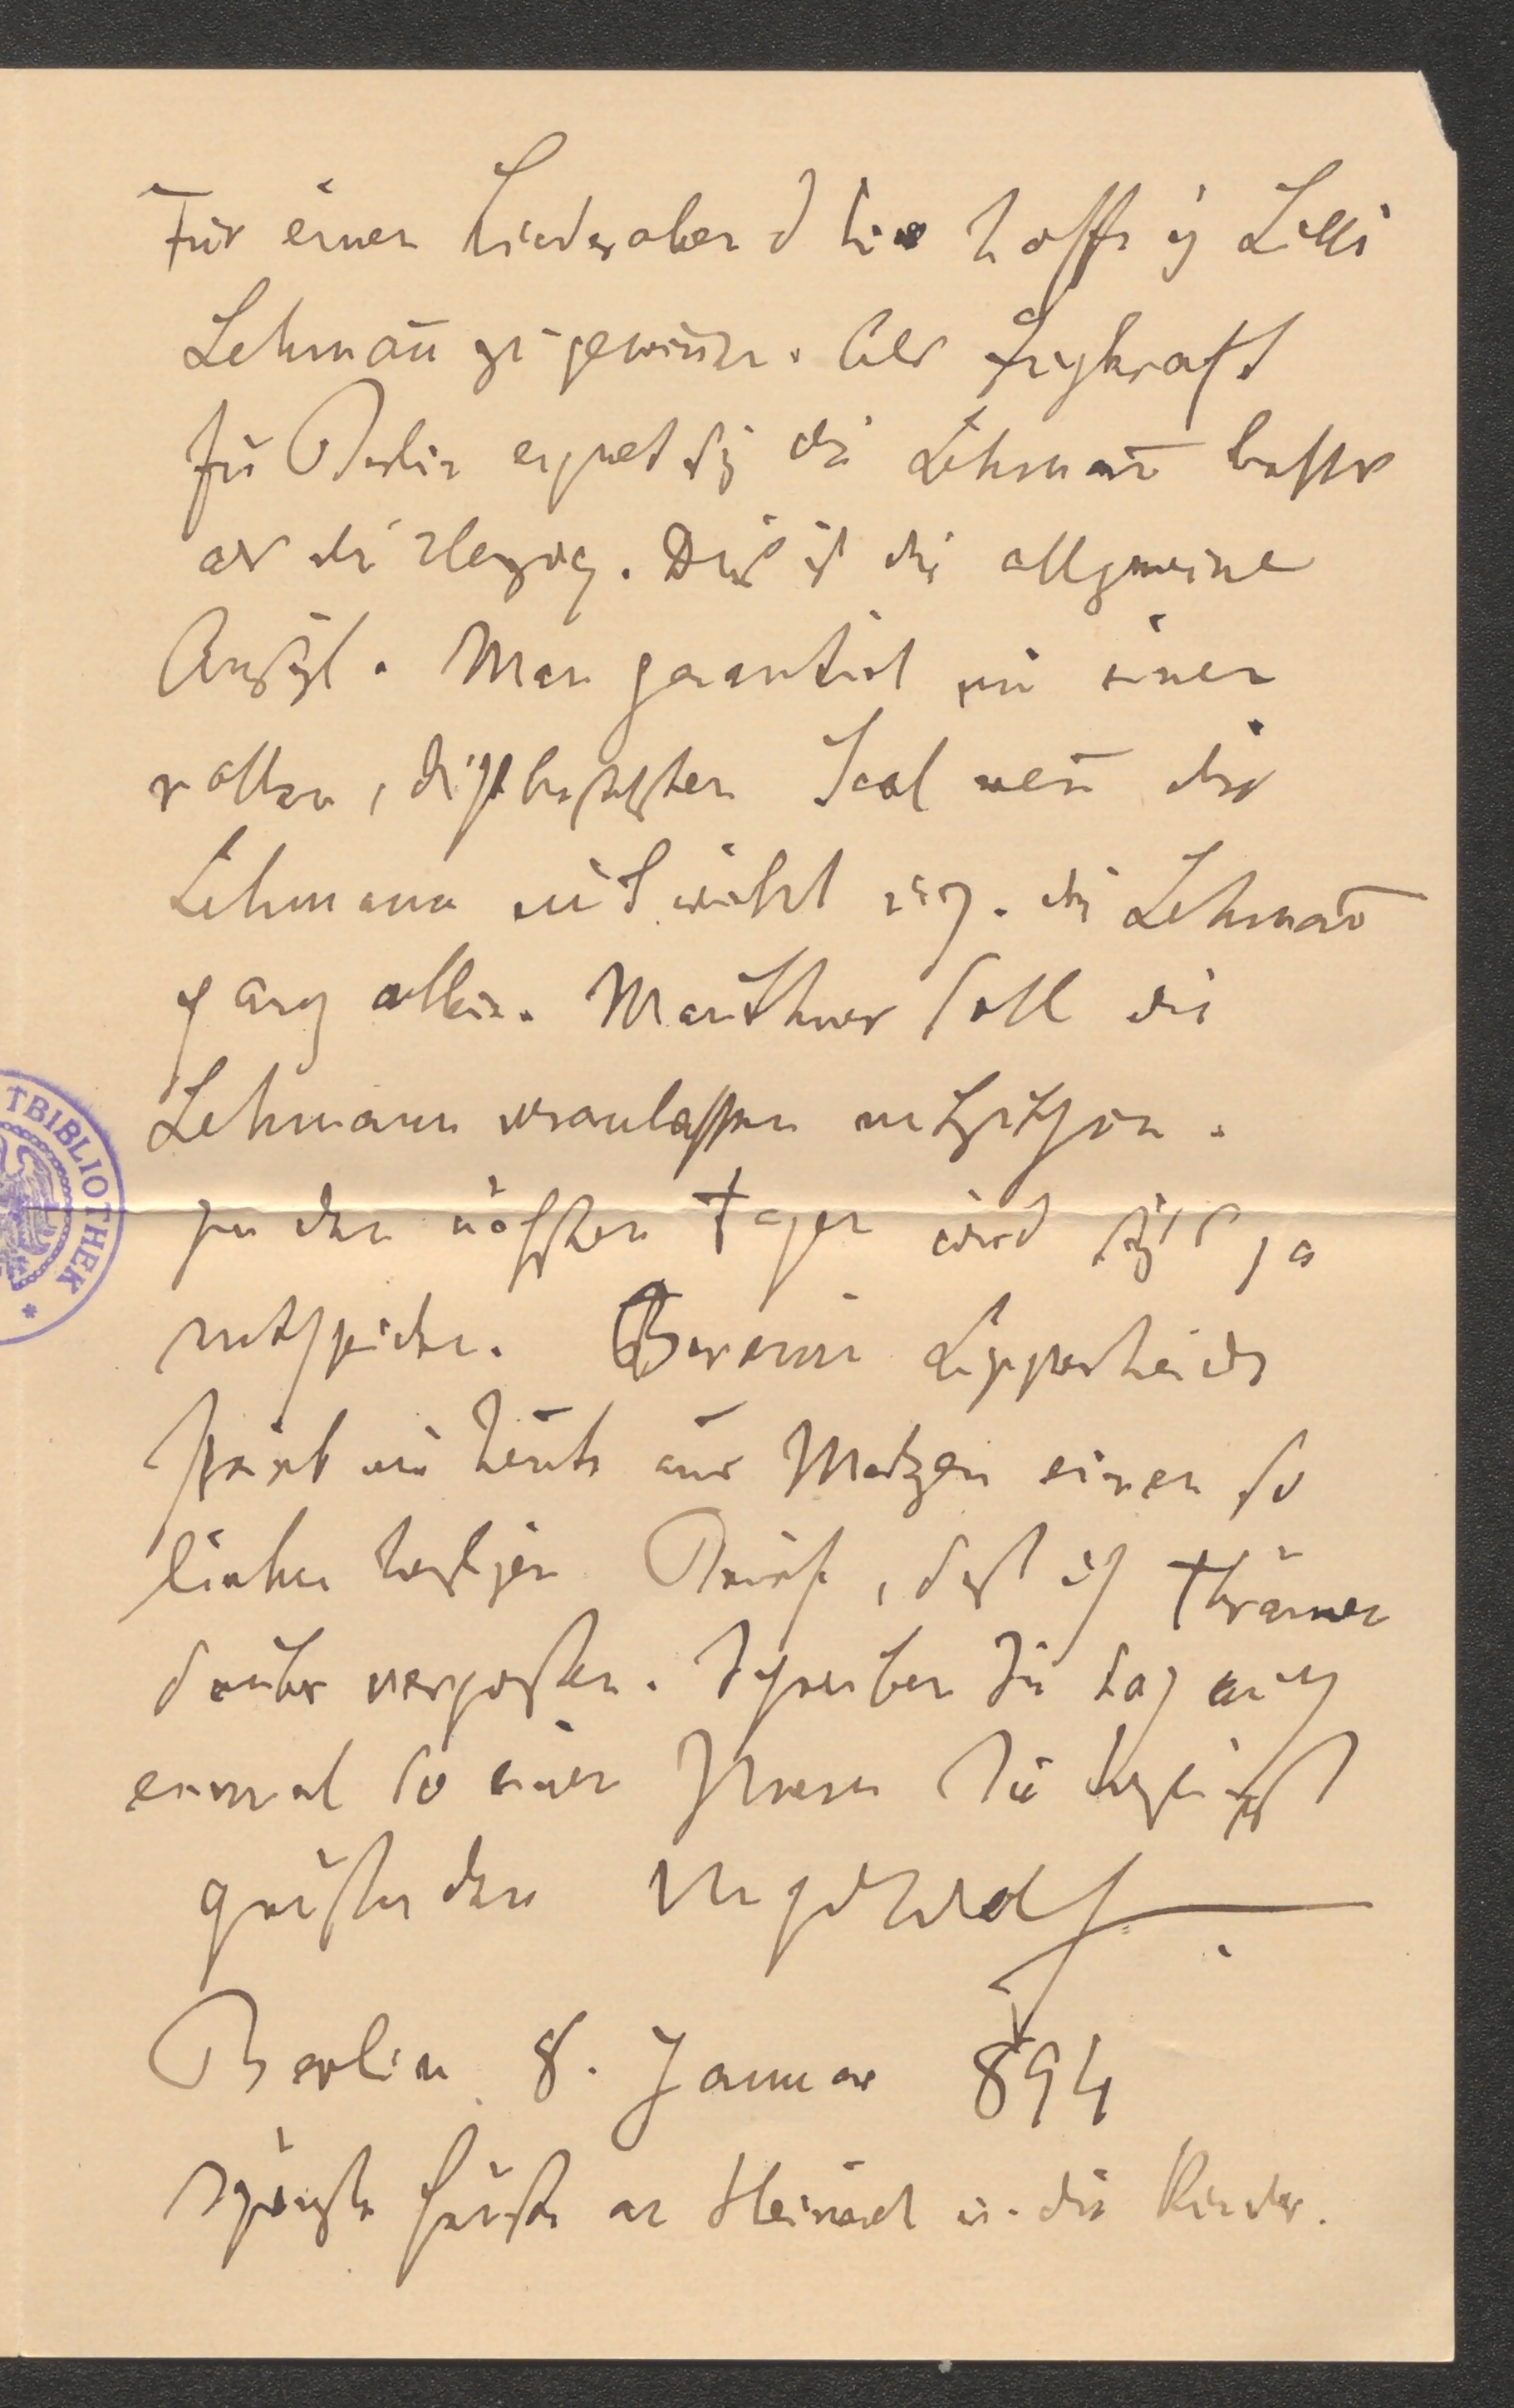 Für einen Liederabend hier hoffe ich Lilli
Lehmañ zu gewiñen. Als Zugkraft
für Berlin eignet sich die Lehmañ besser
als die Herzog. Dieß ist die allgemeine
Ansicht. Man garantirt mir einen
vollen, dichtbesetzten Saal weñ die
Lehmann mitwirkt resp. die Lehmañ
ganz allein. Mauthner soll die
Lehmann veranlassen mitzuthun.
In den nächsten Tagen wird sich's ja
entscheiden. Baronin Lipperheide
schrieb mir heute aus Matzen einen so
lieben herzigen Brief, daß ich Thränen
darüber vergossen. Schreiben Sie doch auch
einmal so einen Ihrem Sie herzlichst
grüßenden Hugo Wolf
Berlin 8. Januar 894
Schönste Grüße an Heinrich u. die Kinder.
TBIBLIOTHEK *